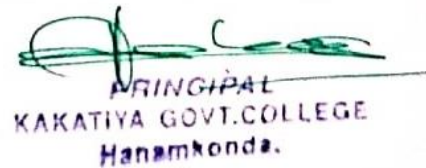 PRINCIPAL
KAKATIYA GOVT.COLLEGE
Hanamkonda.